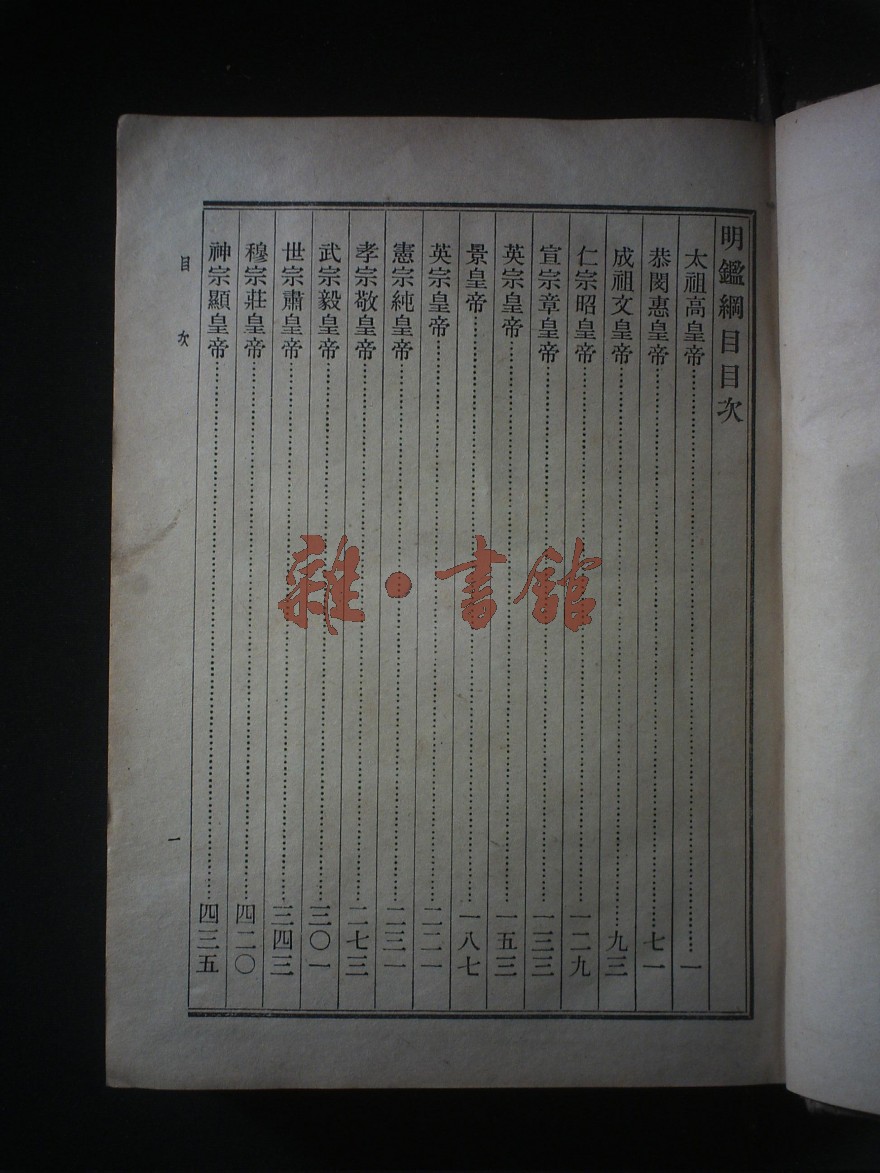 明鑑綱目目次
太祖高皇帝……一
恭閔惠皇帝……七一
成祖文皇帝……九三
仁宗昭皇帝……一二九
宣宗章皇帝……一三三
英宗皇帝……一五三
景皇帝……一八七
英宗皇帝……二二一
憲宗純皇帝……二三一
孝宗敬皇帝……二七三
武宗毅皇帝……三〇一
世宗肅皇帝……三四三
穆宗莊皇帝……四二〇
神宗顯皇帝……四三五
目次
一
雜·書館